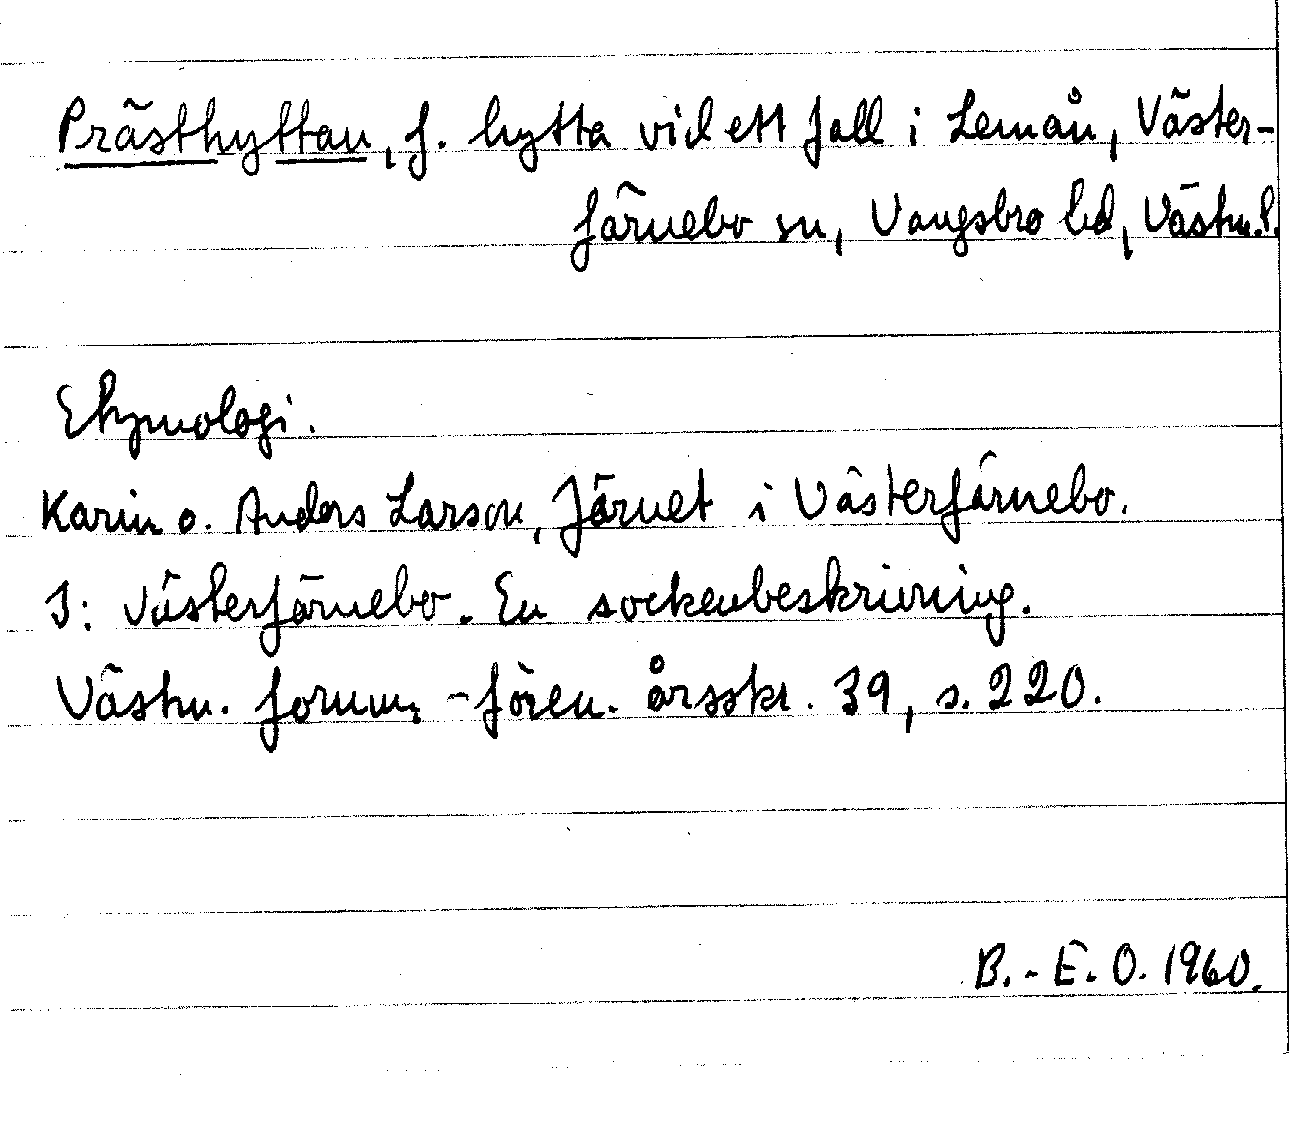 Prästhyttan, f. hytta vid ett fall i Lemån, Väster-
färnebo sn, Vangsbro hd, Västm.l.
Etymologi.
Karin o. Anders Larson, Järnet i Västerfärnebo.
I: Västerfärnebo. En sockenbeskrivning.
Västm. fornm.-fören. årsskr. 39, s. 220.
B.-E.O. 1960.